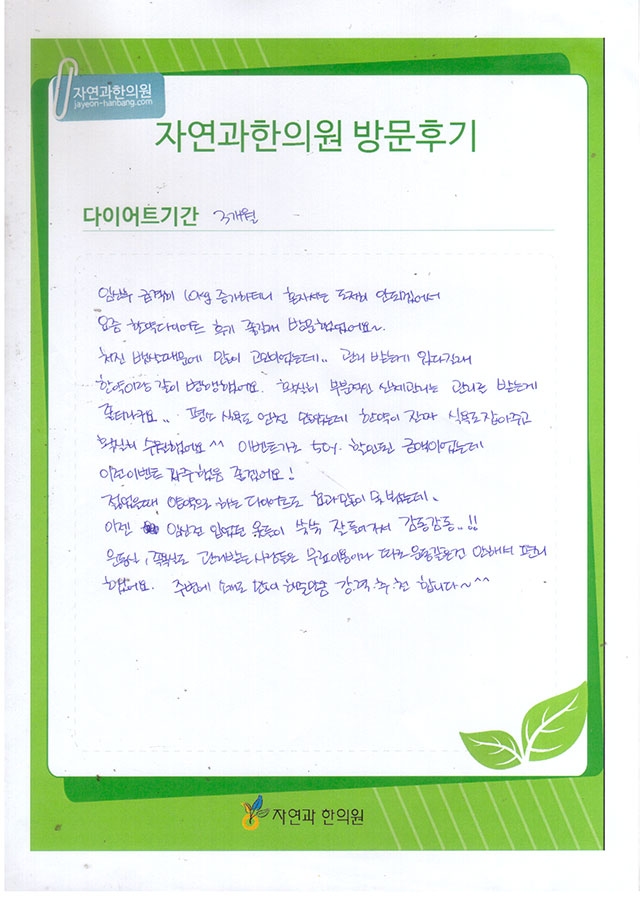 자연과한의원
jayeon-hanbang.com
자연과한의원 방문후기
다이어트기간 3개월
임신후 급격히 10kg 증가하더니 혼자서는 도저히 안되겠어서
요즘 한약다이어트 후기 좋길래 방문했었어요~
처진 뱃살때문에 많이 고민이었는데.. 관리 받는게 있다길래
한약이랑 같이 병행했어요. 확실히 부분적인 신체관리는 관리로 받는게
좋더라구요.. 평소 식욕도 엄청 많은데 한약이 진짜 식욕도 잡아주고
확실히 수월했어요^^ 이벤트가로 50% 할인된 금액이었는데
이런이벤트 자주했음 좋겠어요!
젊었을때 양약으로 하는 다이어트도 효과많이 못봤는데.
이젠 임신전 입었던 옷들이 쏙쏙 잘 들어가서 감동감동..!!
운동실, 족욕실도 관리받는 사람들은 무료이용이라 따로 운동같은건 안해서 편리
했어요. 주변에 소개도 많이 해줄만큼 강.력.추.천 합니다~^^
자연과 한의원